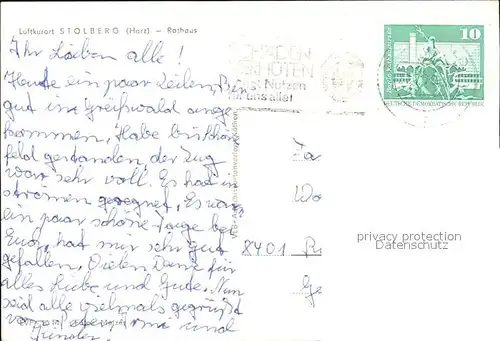 Luftkurort STOLBERG (Harz) — Rathaus
Ihr Lieben alle!
Heute ein paar Zeilen, Bin
gut in Greifswald ange
kommen, Habe bis Schön
feld gestanden, der Zug
war sehr voll. Es hat in
strömen geregnet, Es war
ein paar schöne Tage bei
Euch, hat mir sehr gut
gefallen, Vielen Dank für
alles Liebe und Gute. Nun
seid alle vielmals gegrüßt
von und
Kinder.
SCHADEN
VERHÜTEN
Nutzen
uns alle!
10
DEUTSCHE DEMOKRATISCHE REPUBLIK
8401
privacy protection
Datenschutz